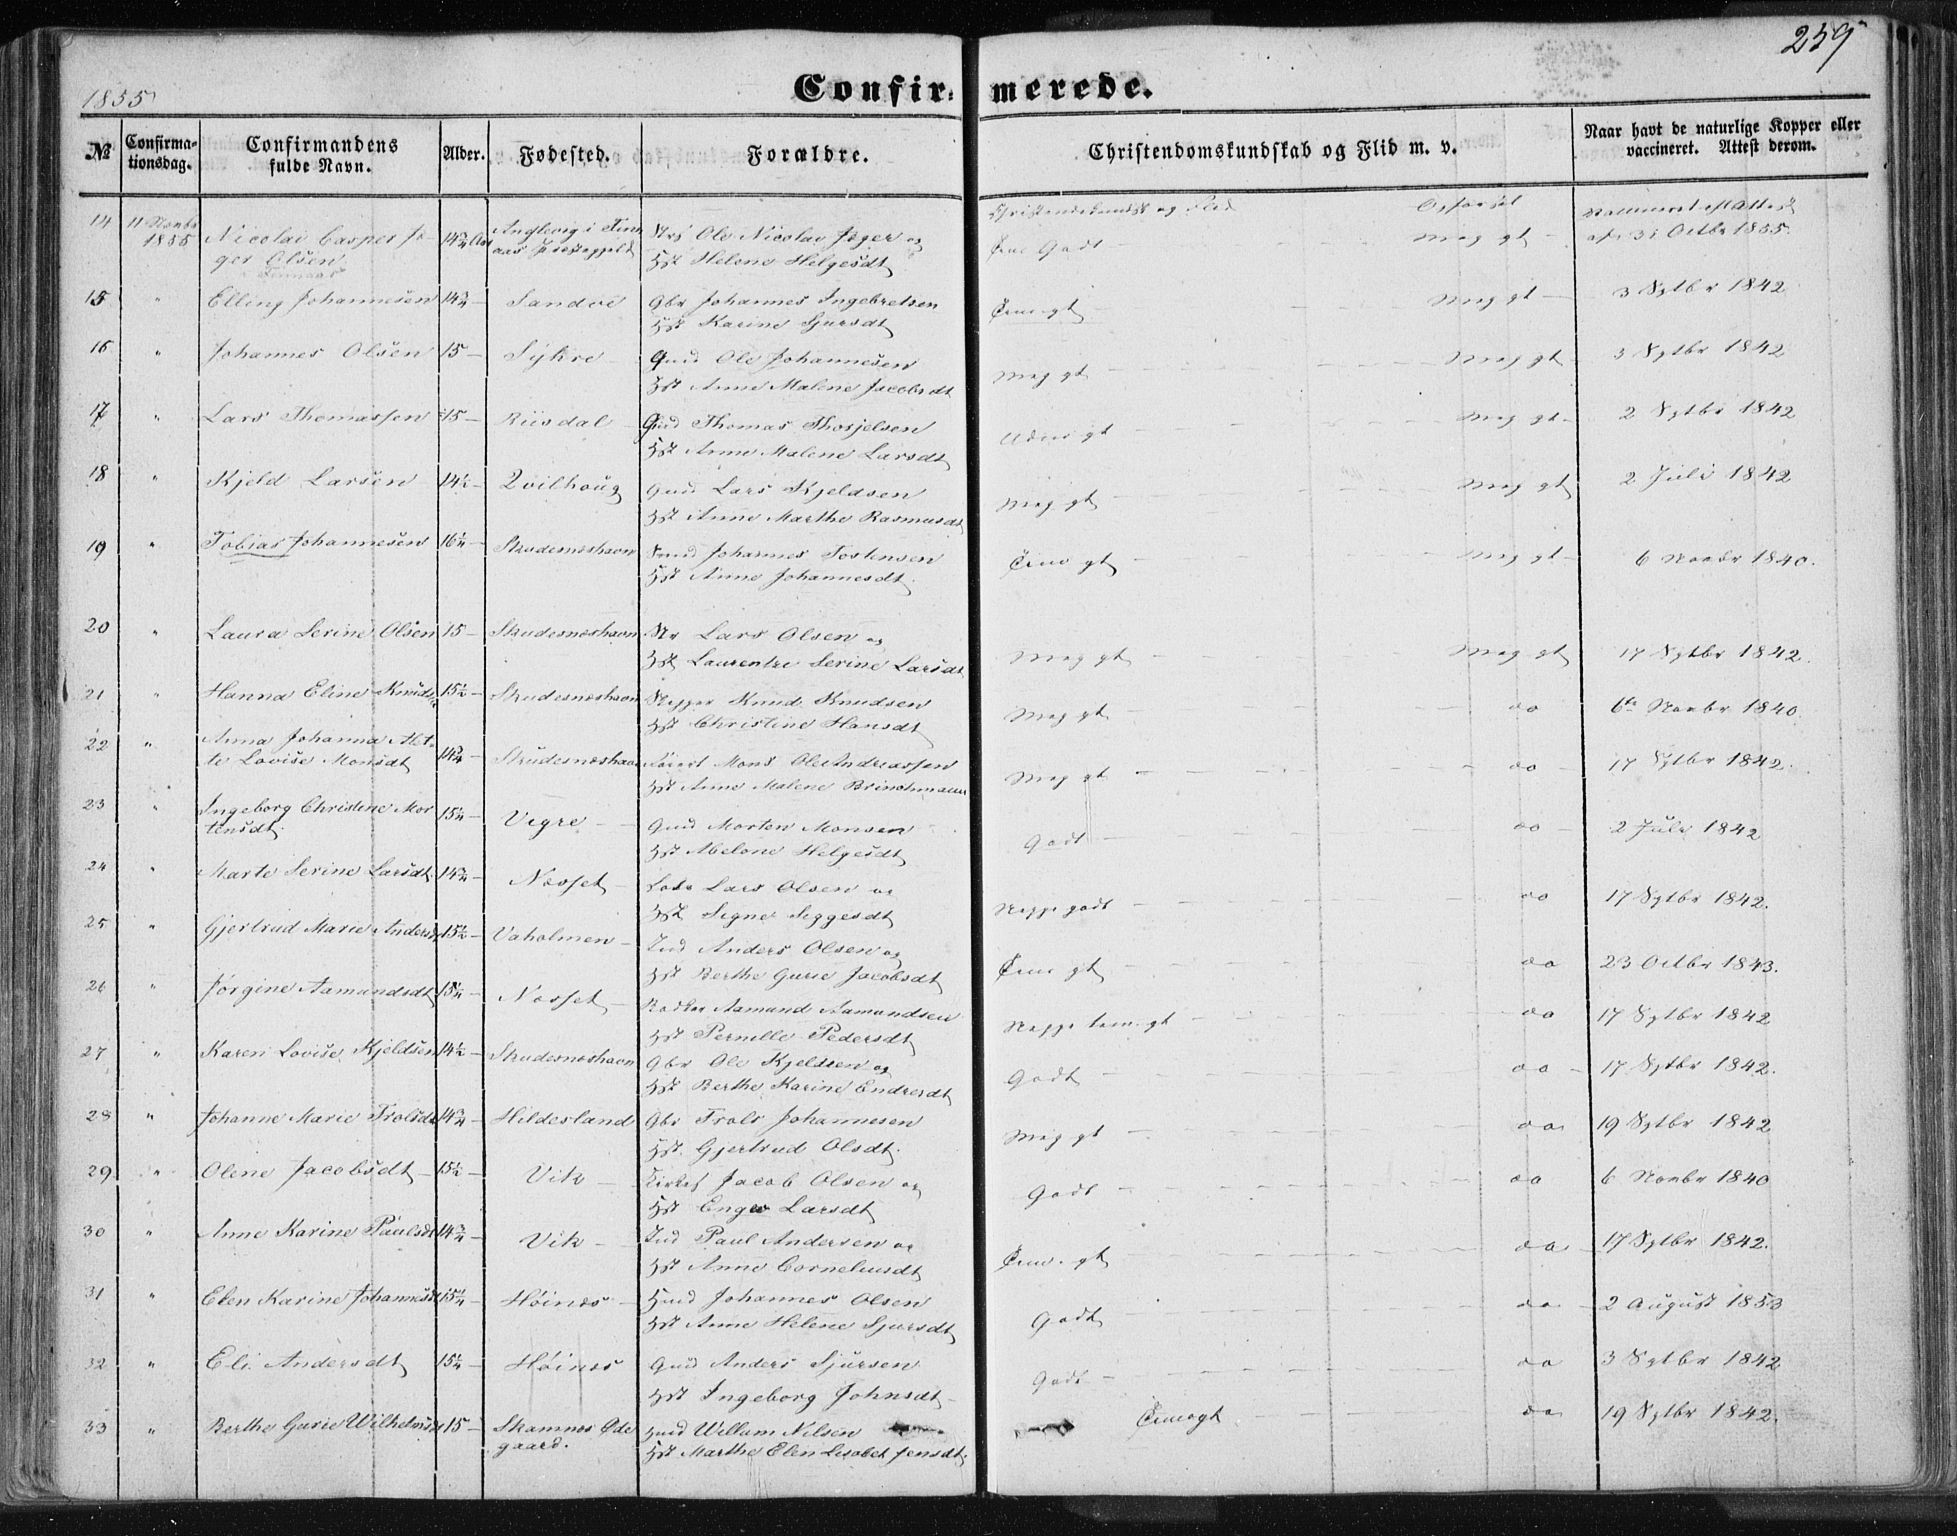 259
1855
Confirmerede.
№ Confirmationsdag. Confirmandens fulde Navn. Alder. Fødested. Forældre. Christendomskundskab og Flid m. v. Naar havt de naturlige Kopper eller vaccineret. Attest derom.
14 11 Novbr 1855 Nicolai Casper Jæger Olsen 14¾ Aar Ole Nicolai Jæger og
Hst Helene Helgesdt Godt meg gt 1855.
15 " Elling Johannesen 14¾ – Sandve Gbr Johannes Ingebretsen
Hst Karine Sjursdt meg gt 3 Sptbr 1842
16 " Johannes Olsen 15 – Syhre Gmd Ole Johannesen
Hst Anne Malene Jacobsdt meg gt meg gt 3 Sptbr 1842
17 " Lars Thomassen 15 – Riisdal Gmd Thomas
Hst Anne Malene Larsdt meg gt 2 Sptbr 1842
18 " Kjeld Larsen 14½ – Qvilhoug Gmd Lars Kjeldsen
Hst Anne Marthe Rasmusdt meg gt meg gt 2 Juli 1842
19 " Tobias Johannesen 16¼ – Skudesneshavn Johannes Tostensen
Hst Anne Johannesdt. gt meg gt 6 Novbr 1840.
20 " Laura Serine Olsen 15 – Skudesneshavn Lars Olsen og
Hst Laurentze Serine Larsdt meg gt meg gt 17 Sptbr 1842.
21 " Hanna Eline 15½ – Skudesneshavn Knud Knudsen
Hst Christine Hansdt meg gt do 6te Novbr 1840.
22 " Anna Johanna
Lovise Monsdt 14¾ – Skudesneshavn Mons Ole Andreassen
Hst Anne Malene Brinchmann meg gt do 17 Sptbr 1842.
23 " Ingeborg Christine Mortensdt. 15¼ – Vigre – Gmd Morten Monsen
Hst Abelone Helgesdt Godt do – 2 Juli 1842
24 " Marte Serine Larsdt. 14¾ – Lars Olsen og
Hst Signe Siggesdt Neppe godt do 17 Sptbr 1842.
25 " Gjertrud Marie 15½ – Vaholmen – Anders Olsen og
Hst Berthe Gurie Jacobsdt gt do 23 Octbr 1843.
26 " Jørgine Aamundsdt 15¼ – Aamund Aamundsen
Hst Pernille Pedersdt Neppe gt do 17 Sptbr 1842
27 " Karen Lovise Kjeldsen 14½ – Skudesneshavn Gbr Ole Kjeldsen og
Hst Berthe Karine Endresdt Godt do – 17 Sptbr 1842.
28 " Johanne Marie 14¾ – Hildesland Gbr Trols Johannesen
Hst. Gjertrud Olsdt. meg gt do 19 Sptbr 1842
29 " Olene Jacobsdt – 15½ – Vik – Jacob Olsen og
Hst Larsdt Godt do 6 Novbr 1840
30 " Anne Karine Paulsdt 14¾ – Vik – Paul Andersen og
Hst Anne Corneliusdt gt do – 17 Sptbr 1842.
31 " Elen Karine Johannesdt 15¼ – Høines – Johannes Olsen
Hst Anne Helene Sjursdt Godt do – 2 August 1853
32 " Eli Andersdt 15¼ – Høines Gmd Anders Sjursen
Hst Ingeborg Johnsdt – Godt – do 3 Sptbr 1842
33 " Berthe Gurie 15 – Skamnes Ødegaard. Willum Nilsen
Hst Marthe Elen Lisabet Jensdt. do 19 Sptbr 1842.